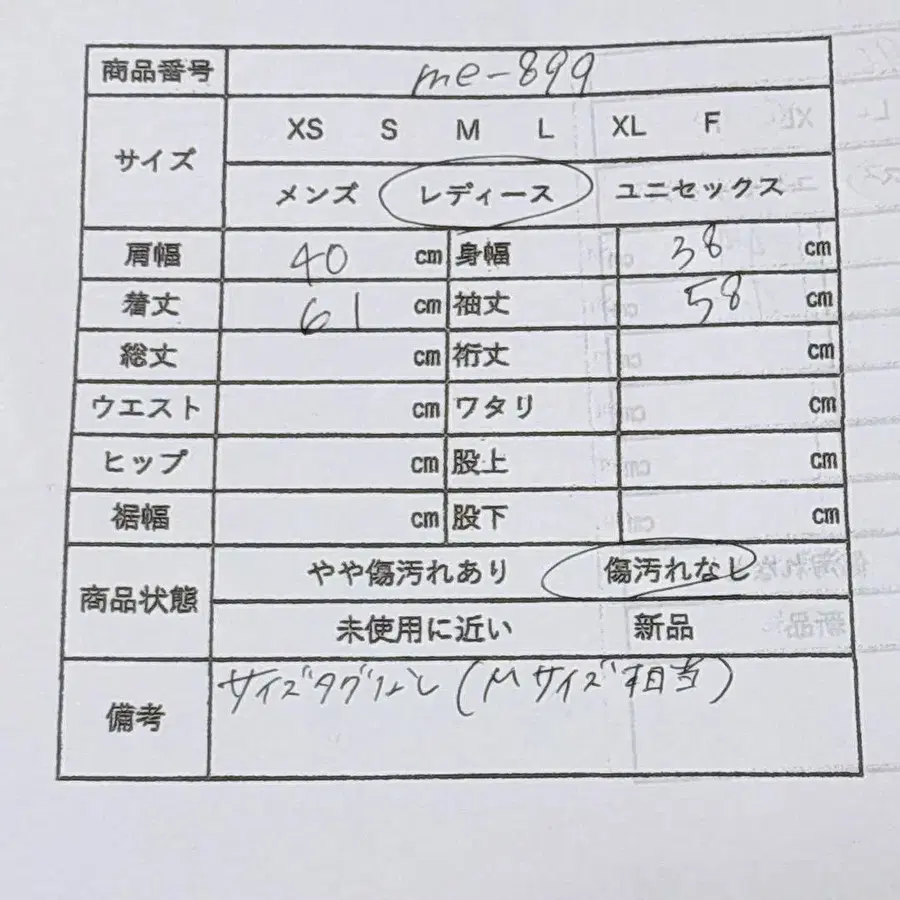 商品番号 me-899
サイズ XS S M L XL F
メンズ レディース ユニセックス
肩幅 40 cm 身幅 38 cm
着丈 61 cm 袖丈 58 cm
総丈 cm 裄丈 cm
ウエスト cm ワタリ cm
ヒップ cm 股上 cm
裾幅 cm 股下 cm
商品状態 やや傷汚れあり 傷汚れなし
未使用に近い 新品
備考 サイズタグなし(Mサイズ相当)